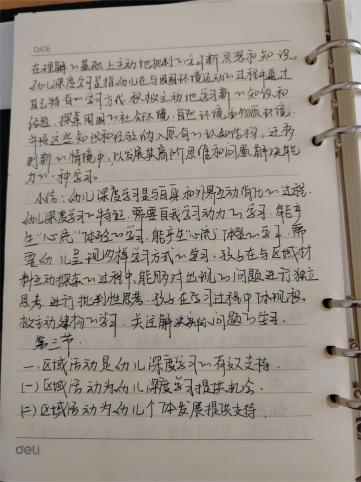 DATE
在理解的基础上主动地批判的学习新思想和知识。
幼儿深度学习是指幼儿在与周围环境互动的过程中通过
自己特有的学习方式积极主动地学习新的知识和
经验,探索周围的社会环境、自然环境和物质环境,
并将这些知识和经验纳入原有的认知结构,迁移
到新的情境中,以发展其高阶思维和问题解决能
力的一种学习。
小结:幼儿深度学习是与自身和外界互动的过程.
幼儿深度学习的特征:需要自我学习动力的学习.能产
生"心流"体验的学习.能产生"心流"体验的学习.需
要幼儿呈现多样学习方式的学习.孩子在与区域材
料互动探索的过程中,能够对出现的问题进行独立
思考.进行批判性思考.孩子在学习过程中体现积
极主动建构的学习.关注解决实际问题的学习.
第三节.
一.区域活动是幼儿深度学习的有效支持.
(一)区域活动为幼儿深度学习提供机会.
(二)区域活动为幼儿个体发展提供支持.
deli